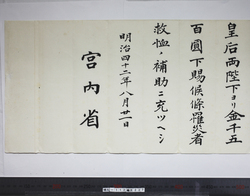 皇后両陛下ヨリ金千五
百圓下賜候條罹災者
救恤ノ補助ニ充ツヘシ
明治四十二年八月廿一日
宮内省